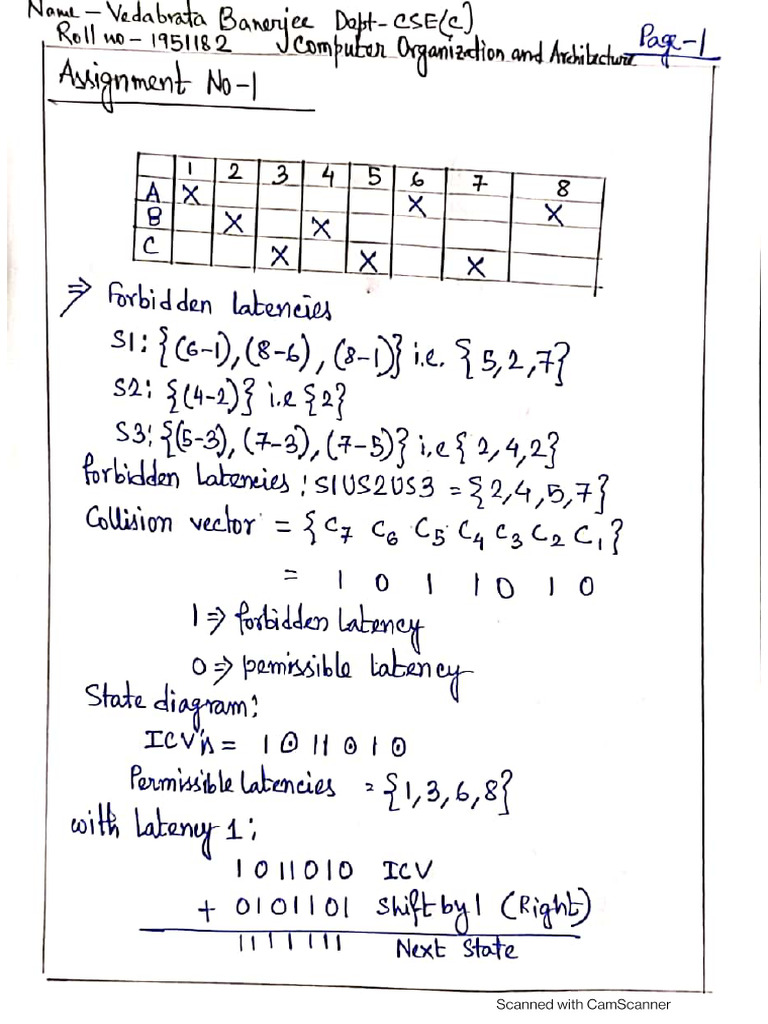 Name - Vedabrata Banerjee Dept - CSE(C)
Roll no - 1951182 Computer Organization and Architecture Page-1
Assignment No-1
1 2 3 4 5 6 7 8
A X X X
B X X
C X X X
⇒ Forbidden latencies
S1: {(6-1), (8-6), (8-1)} i.e. {5, 2, 7}
S2: {(4-2)} i.e {2}
S3: {(5-3), (7-3), (7-5)} i.e {2, 4, 2}
forbidden latencies : S1US2US3 = {2, 4, 5, 7}
Collision vector = {C7 C6 C5 C4 C3 C2 C1}
= 1 0 1 1 0 1 0
1 ⇒ forbidden latency
0 ⇒ pemissible latency
State diagram:
ICV is = 1 0 1 1 0 1 0
Permissible latencies = {1, 3, 6, 8}
with latency 1:
1 0 1 1 0 1 0 ICV
+ 0 1 0 1 1 0 1 Shift by 1 (Right)
1 1 1 1 1 1 1 Next State
Scanned with CamScanner